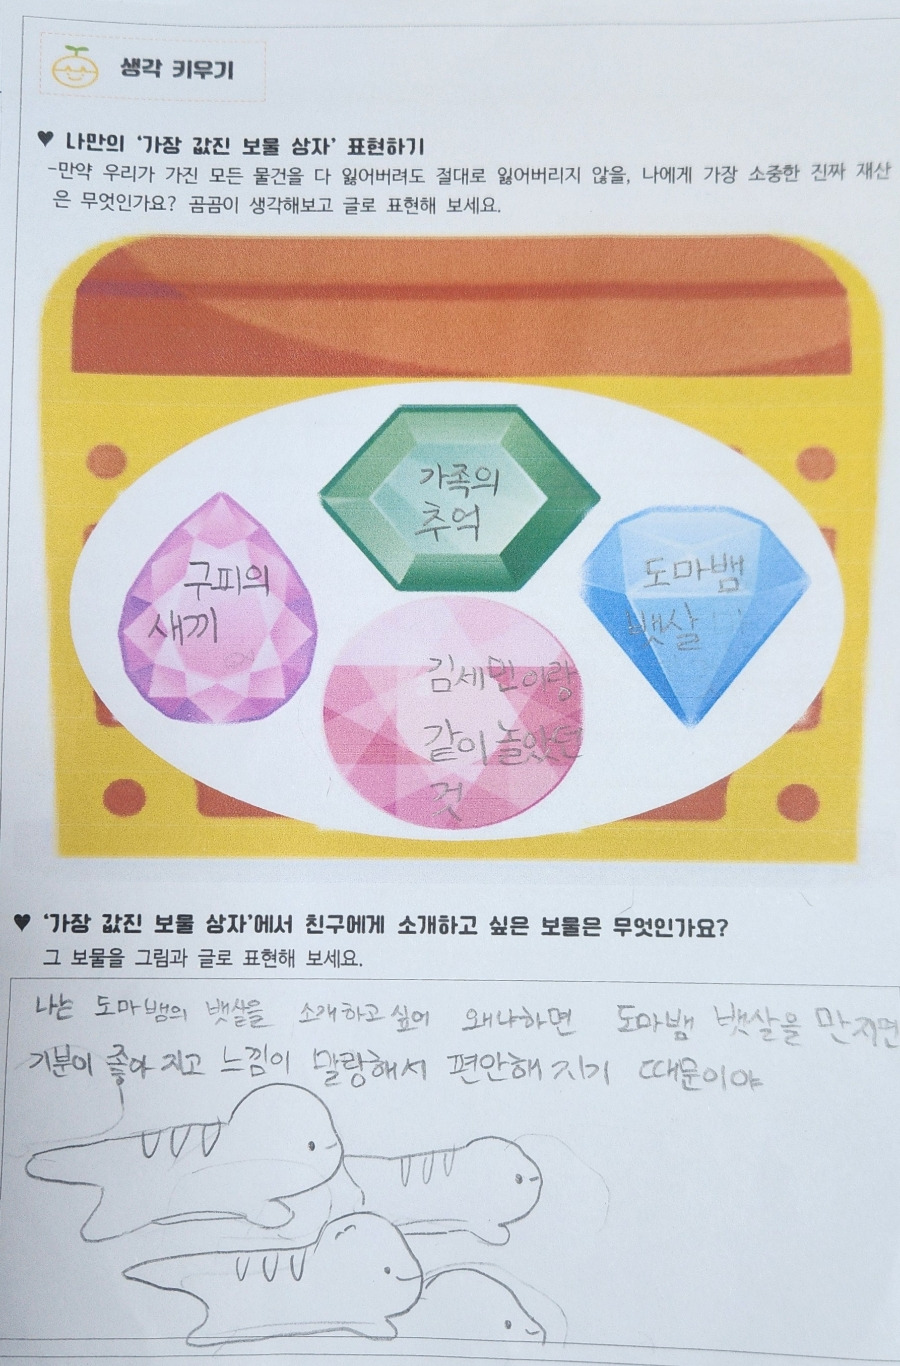 생각 키우기
♥ 나만의 '가장 값진 보물 상자' 표현하기
-만약 우리가 가진 모든 물건을 다 잃어버려도 절대로 잃어버리지 않을, 나에게 가장 소중한 진짜 재산
은 무엇인가요? 곰곰이 생각해보고 글로 표현해 보세요.
가족의
추억
구피의
새끼
도마뱀
뱃살
김세민이랑
같이 놀았던
것
♥ '가장 값진 보물 상자'에서 친구에게 소개하고 싶은 보물은 무엇인가요?
그 보물을 그림과 글로 표현해 보세요.
나는 도마뱀의 뱃살을 소개하고 싶어 왜냐하면 도마뱀 뱃살을 만지면
기분이 좋아 지고 느낌이 말랑해서 편안해 지기 때문이야